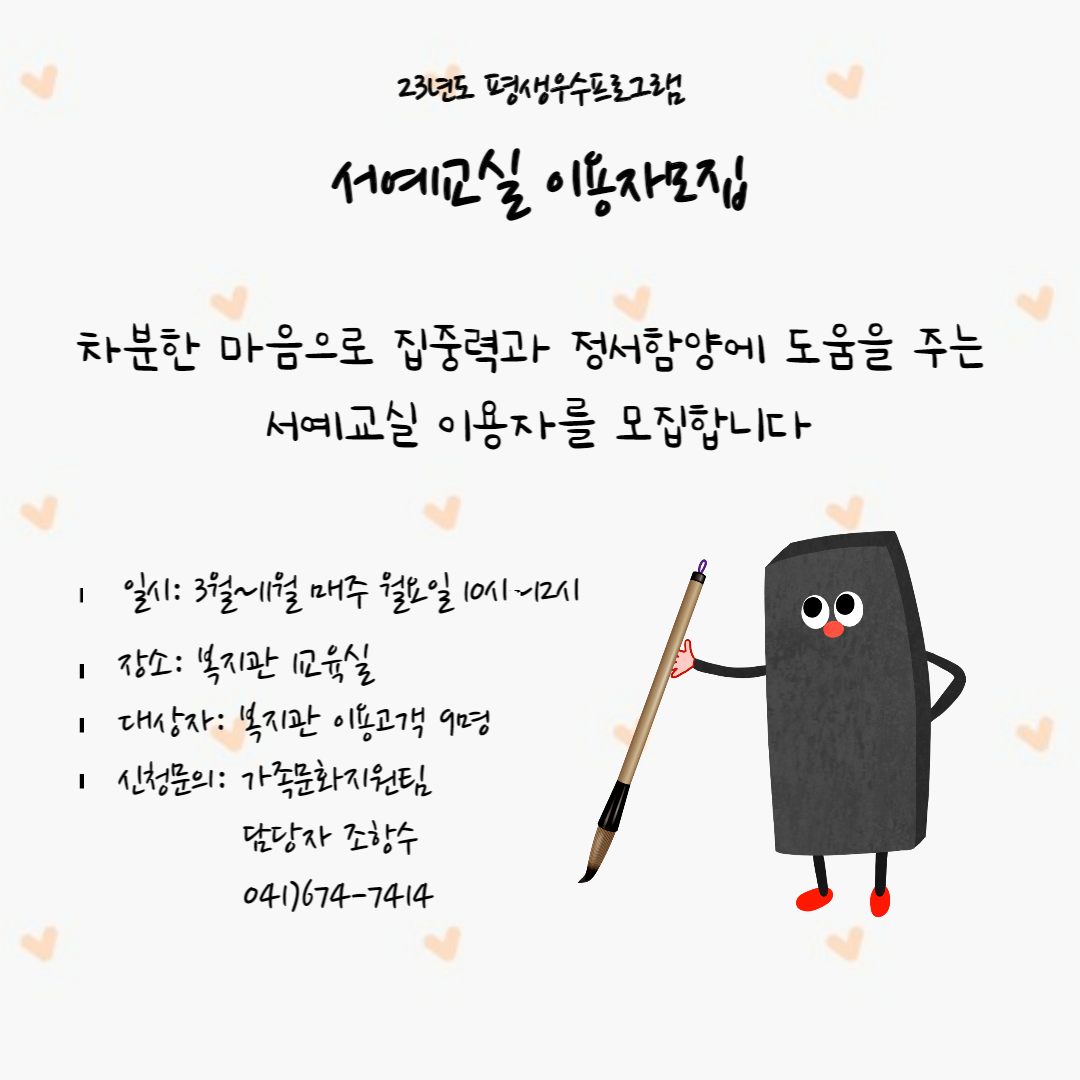 23년도 평생우수프로그램
서예교실 이용자모집
차분한 마음으로 집중력과 정서함양에 도움을 주는
서예교실 이용자를 모집합니다
일시: 3월~11월 매주 월요일 10시~12시
장소: 복지관 1교육실
대상자: 복지관 이용고객 9명
신청문의: 가족문화지원팀
담당자 조항수
041)674-7414